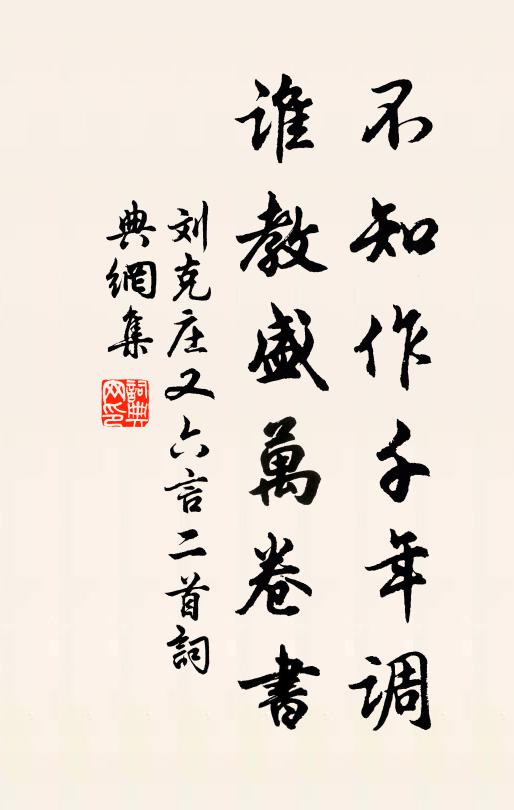 不知作千年调
谁教盛萬卷書
刘克庄又六言二首詞
典網集
詞典网印